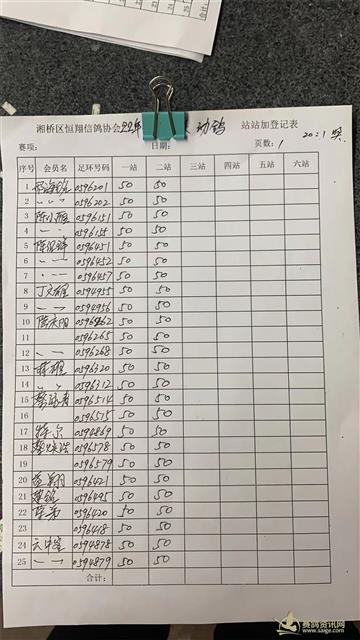 湘桥区恒翔信鸽协会22年 幼鸽 站站加登记表
赛项: 日期: 页数:1 20:1奖
序号 会员名 足环号码 一站 二站 三站 四站 五站 六站
1 0596201 50 50
2 0596202 50 50
3 0596151 50 50
4 0596155 50 50
5 0596451 50 50
6 0596452 50 50
7 0596457 50 50
8 0594955 50 50
9 0594956 50 50
10 50 50
11 0596265 50 50
12 0596268 50 50
13 0596320 50 50
14 0596312 50 50
15 0596514 50 50
16 0596515 50 50
17 0594869 50 50
18 0596578 50 50
19 0596579 50 50
20 0596421 50 50
21 0596495 50 50
22 0596420 50 50
23 0596418 50 50
24 0594878 50 50
25 0594879 50 50
合计:
赛鸽资讯网
www.saige.com